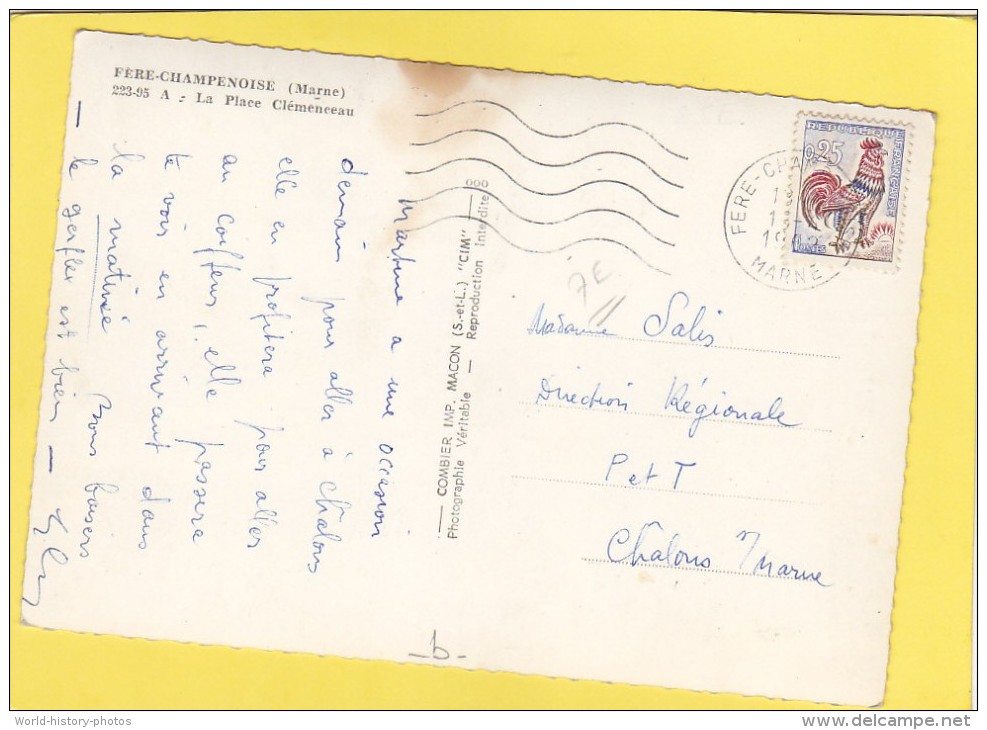 FÈRE-CHAMPENOISE (Marne)
223-95 A - La Place Clémenceau
Martine a une occasion
demain pour aller à Chalons
elle en profitera pour aller
au coiffeur! elle passera
te voir en arrivant dans
la matinée Bons baisers
— le gerflex est bien —
COMBIER IMP. MACON (S.-et-L.) "CIM"
Photographie Véritable — Reproduction Interdite
REPUBLIQUE FRANÇAISE
0,25
FERE-CHA
MARNE
7E
Madame Salis
Direction Régionale
P et T
Chalons s/ Marne
b-
World-history-photos
www.delcampe.net